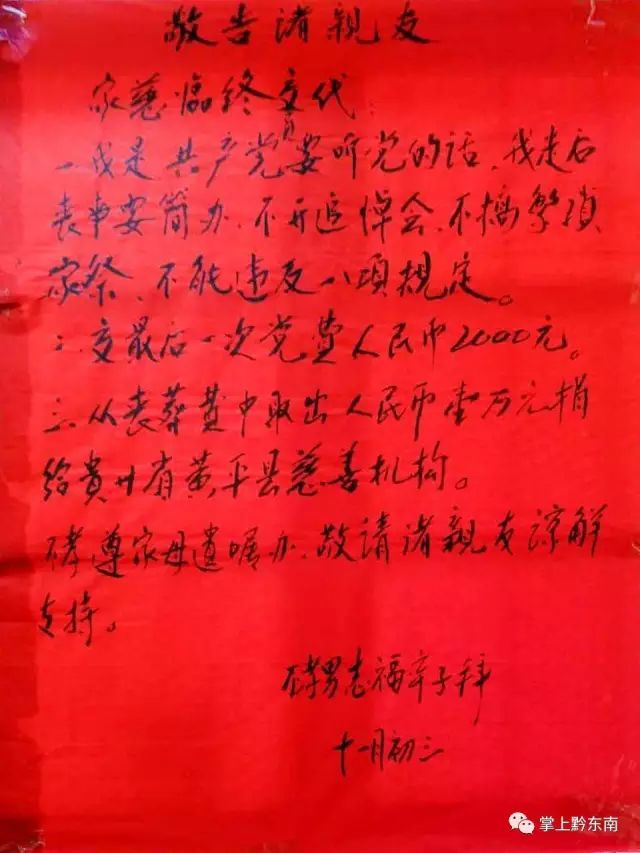 敬告诸親友
家慈临终交代：
一、我是共产党员要听党的话、我走后
丧事要简办、不开追悼会、不搞繁琐
家祭、不能违反八项规定。
二、交最后一次党费人民币2000元。
三、从丧葬费中取出人民币壹万元捐
给贵州省黄平县慈善机构。
孝遵家母遗嘱办、敬请诸親友諒解
支持。
孝男志福率子拜
十一月初三
掌上黔东南